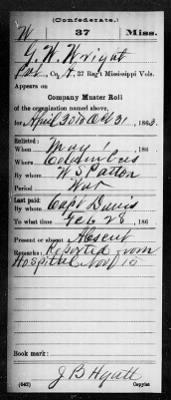 (Confederate.)
W 37 Miss.
G. W. Wright
Pvt, Co. A, 37 Reg't Mississippi Vols.
Appears on
Company Muster Roll
of the organization named above,
for April 30 to Oct 31, 1862.
Enlisted:
When May 1, 186
Where Columbus
By whom W S Patton
Period War
Last paid:
By whom Capt Davis
To what time Feb 28, 186
Present or absent Absent
Remarks: Reported from
Hospital Nov 10
Book mark:
(642) J B Hyatt
Copyist